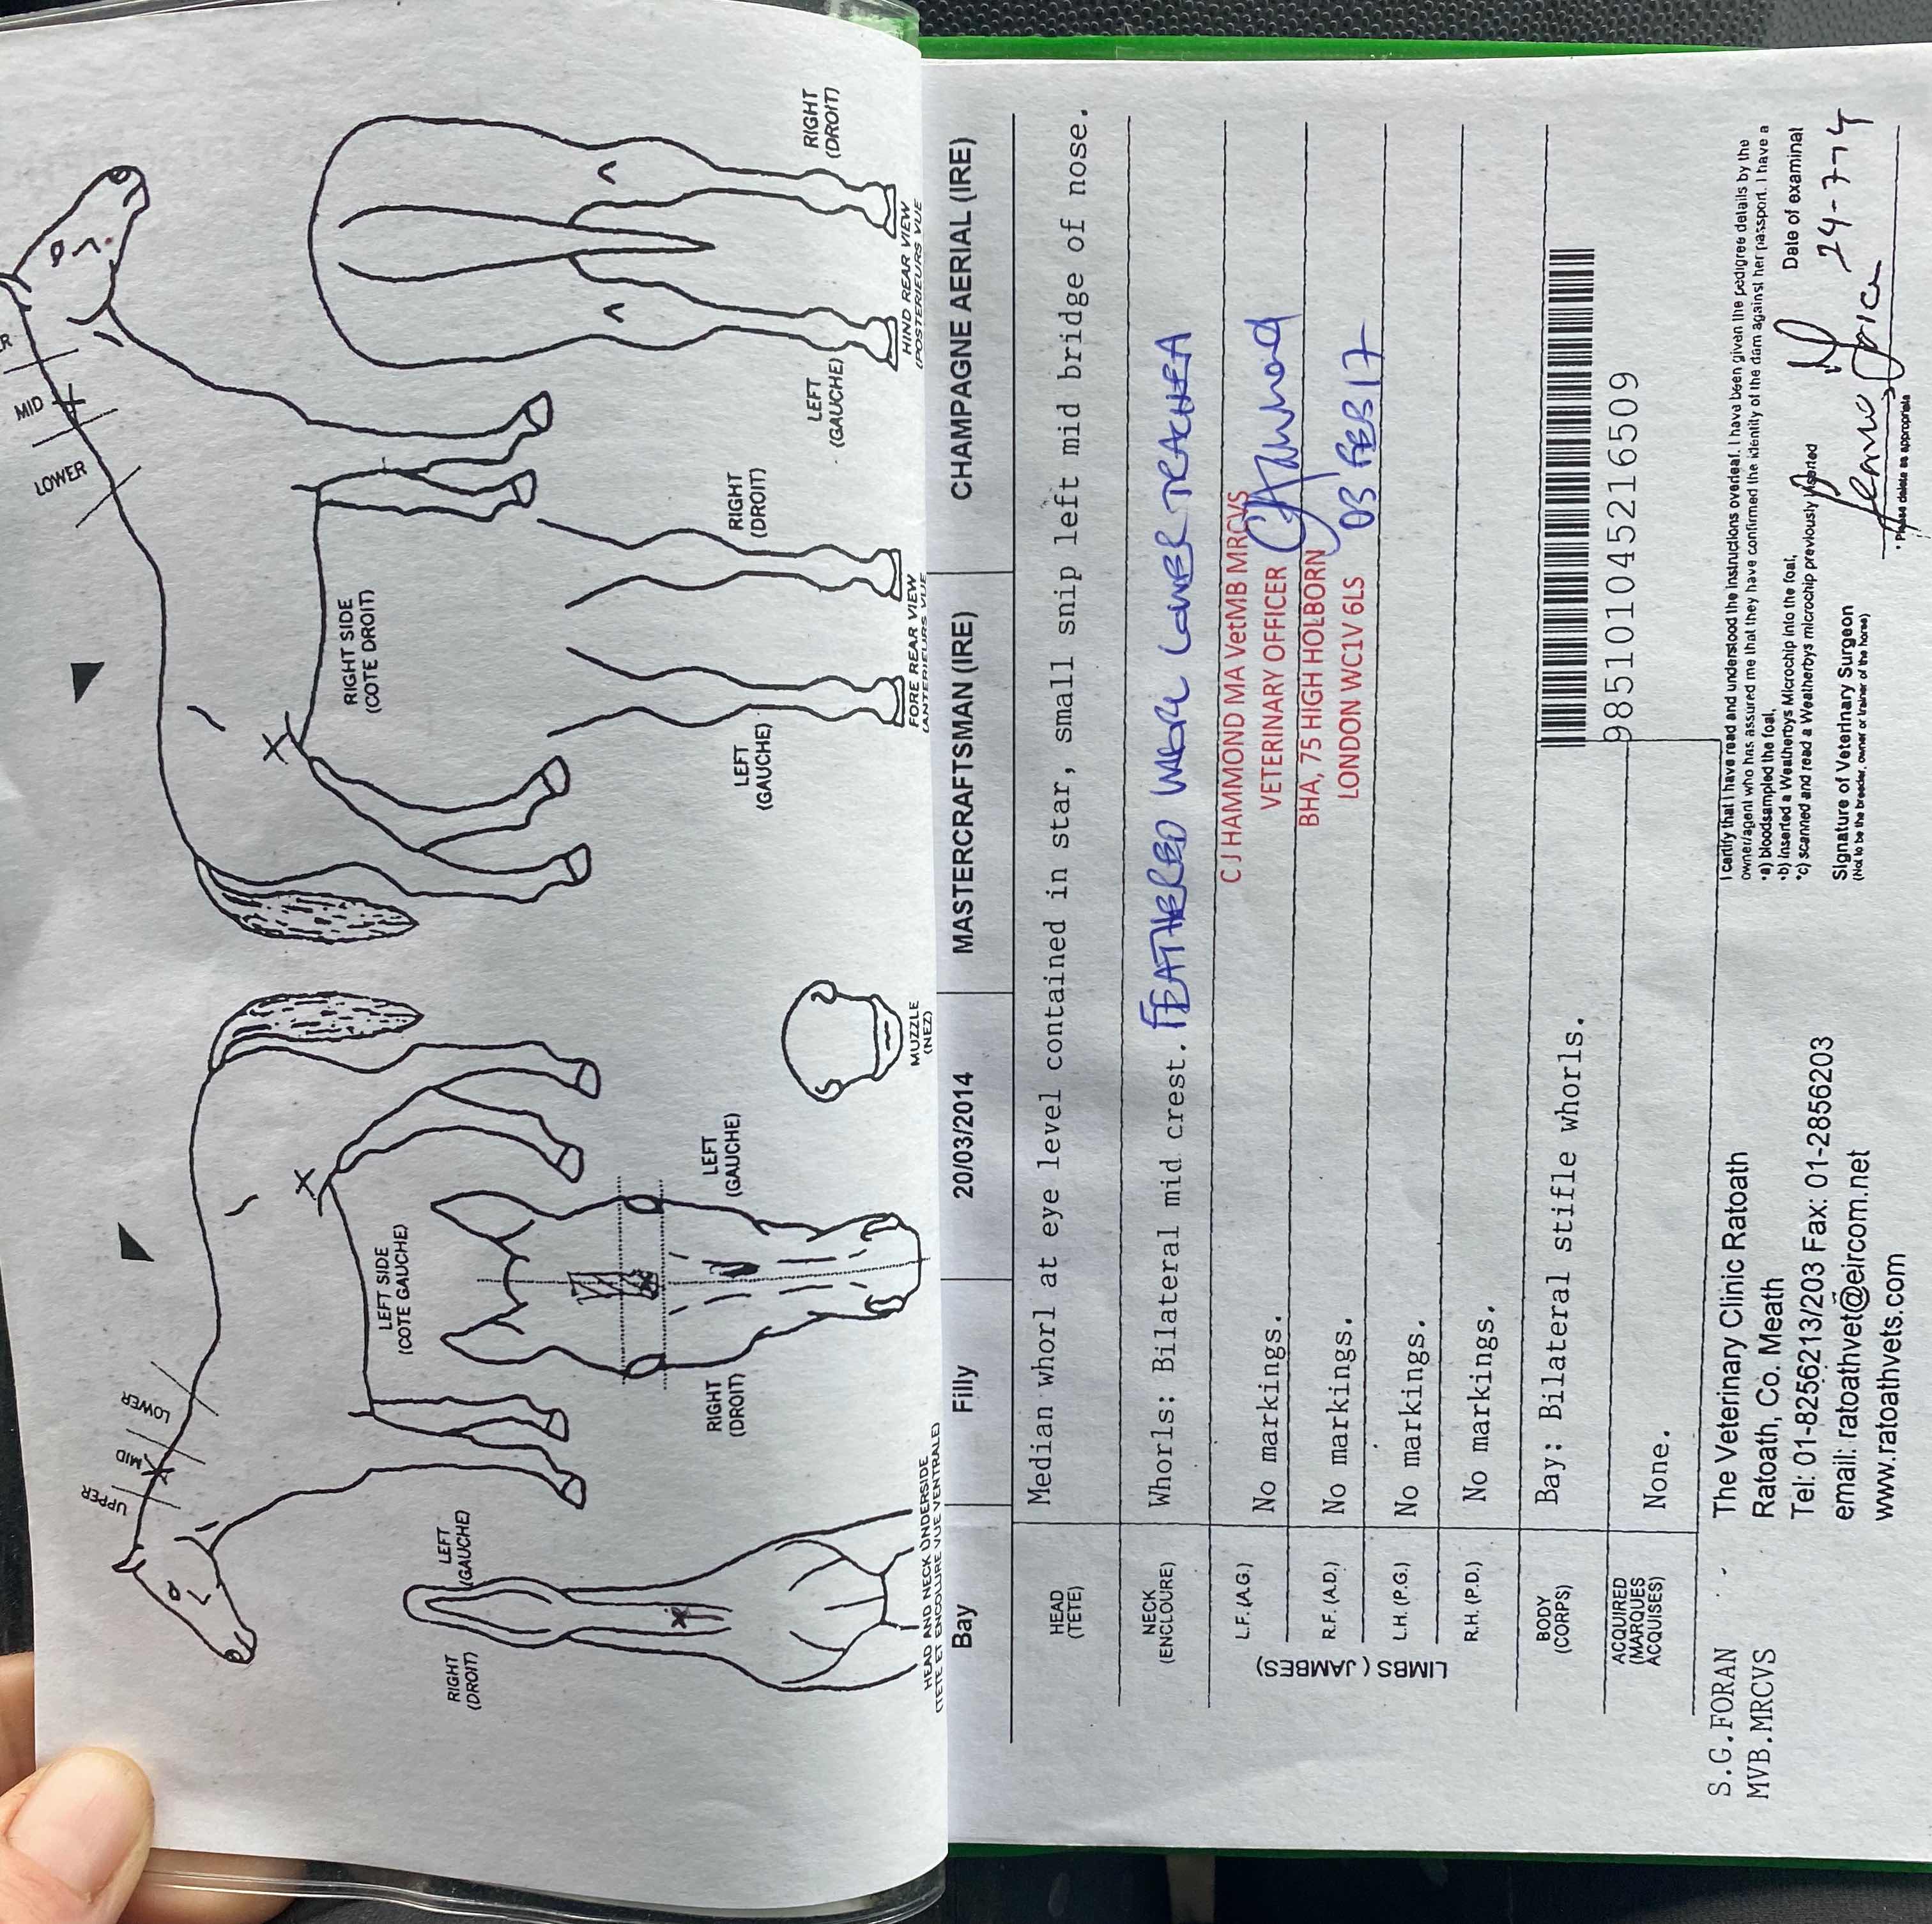 UPPER
MID
LOWER
LEFT SIDE
(COTE GAUCHE)
MID
LOWER
RIGHT SIDE
(COTE DROIT)
RIGHT
(DROIT)
LEFT
(GAUCHE)
HEAD AND NECK UNDERSIDE
(TETE ET ENCOLURE VUE VENTRALE)
RIGHT
(DROIT)
LEFT
(GAUCHE)
MUZZLE
(NEZ)
LEFT
(GAUCHE)
RIGHT
(DROIT)
FORE REAR VIEW
(ANTERIEURS VUE
LEFT
(GAUCHE)
RIGHT
(DROIT)
HIND REAR VIEW
(POSTERIEURS VUE
Bay Filly 20/03/2014 MASTERCRAFTSMAN (IRE) CHAMPAGNE AERIAL (IRE)
HEAD
(TETE)
Median whorl at eye level contained in star, small snip left mid bridge of nose.
NECK
(ENCLOURE)
Whorls: Bilateral mid crest. FEATHERED WHORL LOWER TRACHEA
C J HAMMOND MA VetMB MRCVS
VETERINARY OFFICER
BHA, 75 HIGH HOLBORN
LONDON WC1V 6LS
03 FEB 17
LIMBS (JAMBES)
L.F. (A.G.) No markings.
R.F. (A.D.) No markings.
L.H. (P.G.) No markings.
R.H. (P.D.) No markings.
BODY
(CORPS)
Bay: Bilateral stifle whorls.
ACQUIRED
(MARQUES
ACQUISES)
None.
985101045216509
S.G.FORAN
MVB.MRCVS
The Veterinary Clinic Ratoath
Ratoath, Co. Meath
Tel: 01-8256213/203 Fax: 01-2856203
email: ratoathvet@eircom.net
www.ratoathvets.com
I certify that I have read and understood the instructions overleaf. I have been given the pedigree details by the
owner/agent who has assured me that they have confirmed the identity of the dam against her passport. I have a
*a) bloodsampled the foal,
*b) inserted a Weatherbys Microchip into the foal,
*c) scanned and read a Weatherbys microchip previously inserted
Signature of Veterinary Surgeon
(Not to be the breeder, owner or trainer of the horse)
Date of examinat
24-7-14
* Please delete as appropriate